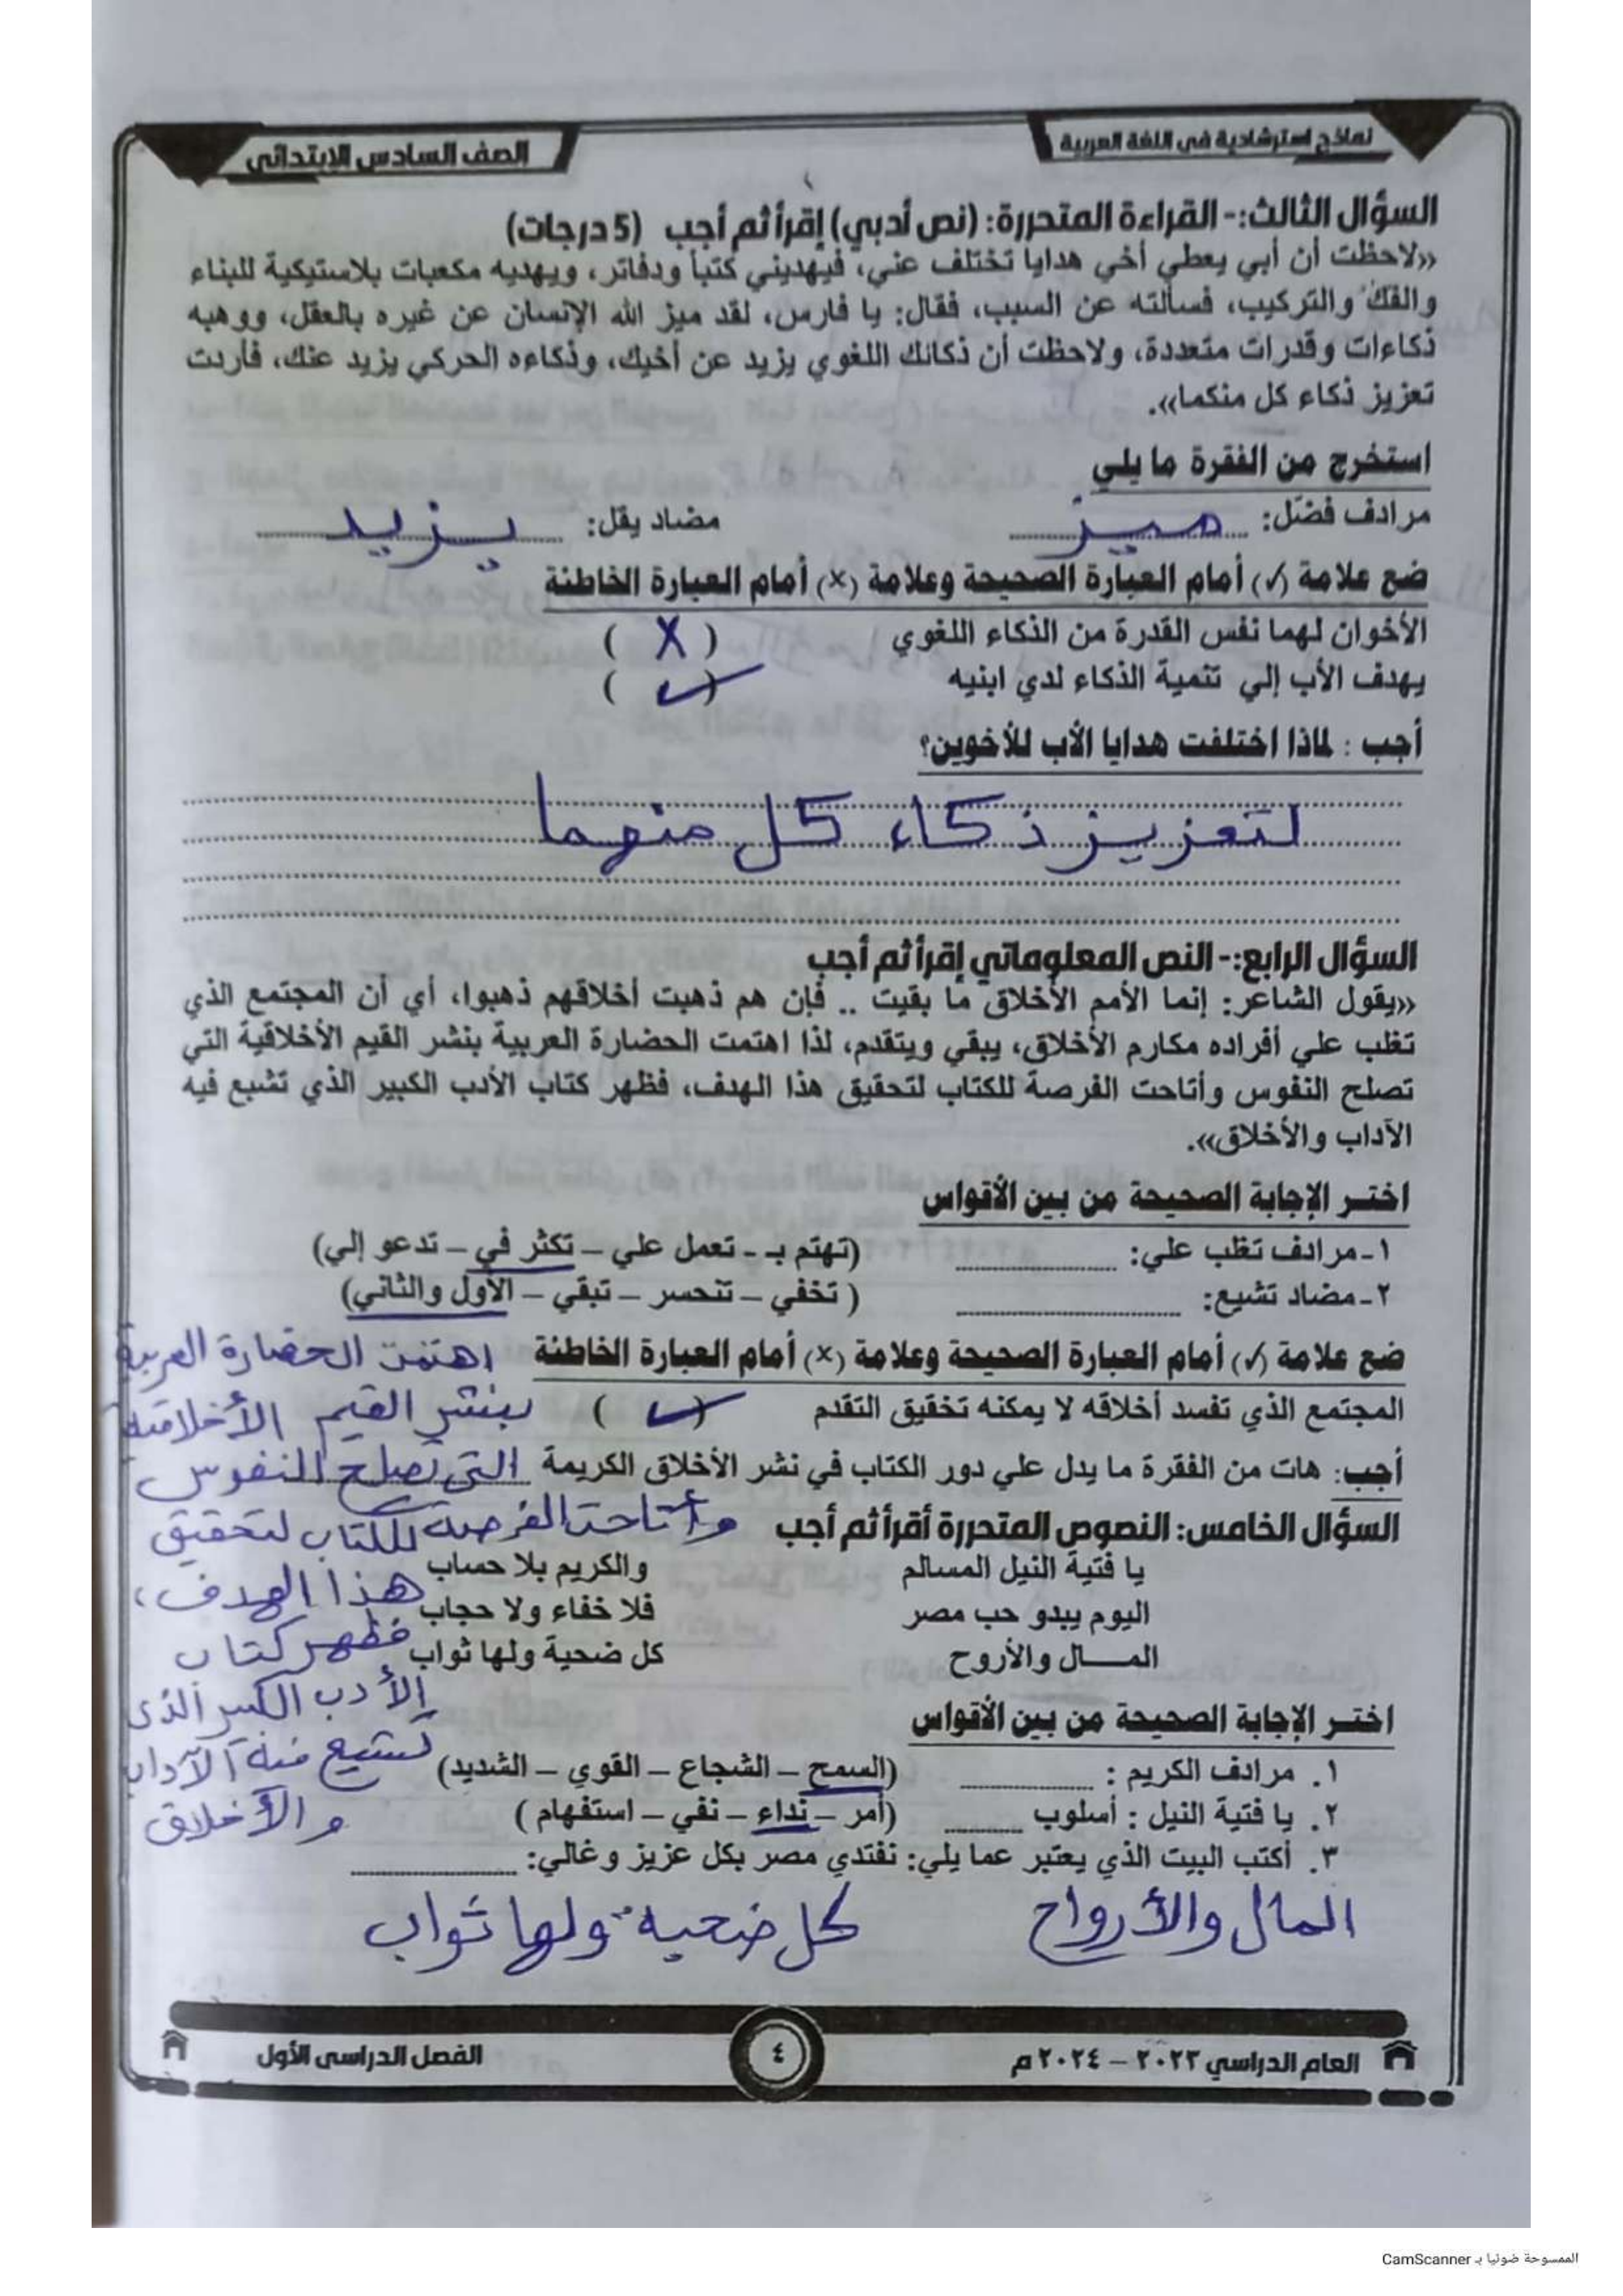 نماذج استرشادية في اللغة العربية
الصف السادس الابتدائي
السؤال الثالث:- القراءة المتحررة: (نص أدبي) إقرأ ثم أجب (5 درجات)
«لاحظت أن أبي يعطي أخي هدايا تختلف عني، فيهديني كتباً ودفاتر، ويهديه مكعبات بلاستيكية للبناء
والفك والتركيب، فسألته عن السبب، فقال: يا فارس، لقد ميز الله الإنسان عن غيره بالعقل، ووهبه
ذكاءات وقدرات متعددة، ولاحظت أن ذكائك اللغوي يزيد عن أخيك، وذكاءه الحركي يزيد عنك، فأردت
تعزيز ذكاء كل منكما».
استخرج من الفقرة ما يلي
مرادف فضّل: ميز مضاد يقل: يزيد
ضع علامة (✓) أمام العبارة الصحيحة وعلامة (×) أمام العبارة الخاطئة
الأخوان لهما نفس القدرة من الذكاء اللغوي ( X )
يهدف الأب إلي تنمية الذكاء لدي ابنيه ( ✓ )
أجب : لماذا اختلفت هدايا الأب للأخوين؟
لتعزيز ذكاء كل منهما
السؤال الرابع:- النص المعلوماتي إقرأ ثم أجب
«يقول الشاعر: إنما الأمم الأخلاق ما بقيت .. فإن هم ذهبت أخلاقهم ذهبوا، أي أن المجتمع الذي
تغلب علي أفراده مكارم الأخلاق، يبقي ويتقدم، لذا اهتمت الحضارة العربية بنشر القيم الأخلاقية التي
تصلح النفوس وأتاحت الفرصة للكتاب لتحقيق هذا الهدف، فظهر كتاب الأدب الكبير الذي تشيع فيه
الآداب والأخلاق».
اختر الإجابة الصحيحة من بين الأقواس
١-مرادف تغلب علي: (تهتم بـ - تعمل علي - تكثر في - تدعو إلي)
٢-مضاد تشيع: ( تخفي - تنحسر - تبقي - الأول والثاني)
ضع علامة (✓) أمام العبارة الصحيحة وعلامة (×) أمام العبارة الخاطئة
المجتمع الذي تفسد أخلاقه لا يمكنه تخقيق التقدم ( ✓ )
أجب: هات من الفقرة ما يدل علي دور الكتاب في نشر الأخلاق الكريمة
اهتمت الحضارة العربية
بنشر القيم الأخلاقية
التى تصلح النفوس
وأتاحت الفرصة للكتاب لتحقيق
هذا الهدف،
فظهر كتاب
الأدب الكبير الذى
تشيع فيه الآداب
والأخلاق
السؤال الخامس: النصوص المتحررة أقرأ ثم أجب
يا فتية النيل المسالم والكريم بلا حساب
اليوم يبدو حب مصر فلا خفاء ولا حجاب
المــال والأروح كل ضحية ولها ثواب
اختر الإجابة الصحيحة من بين الأقواس
١. مرادف الكريم : (السمح - الشجاع - القوي - الشديد)
٢. يا فتية النيل : أسلوب (أمر - نداء - نفي - استفهام )
٣. أكتب البيت الذي يعتبر عما يلي: نفتدي مصر بكل عزيز وغالي:
المال والأرواح كل ضحية ولها ثواب
العام الدراسي ٢٠٢٣ - ٢٠٢٤ م
٤
الفصل الدراسى الأول
الممسوحة ضوئيا بـ CamScanner